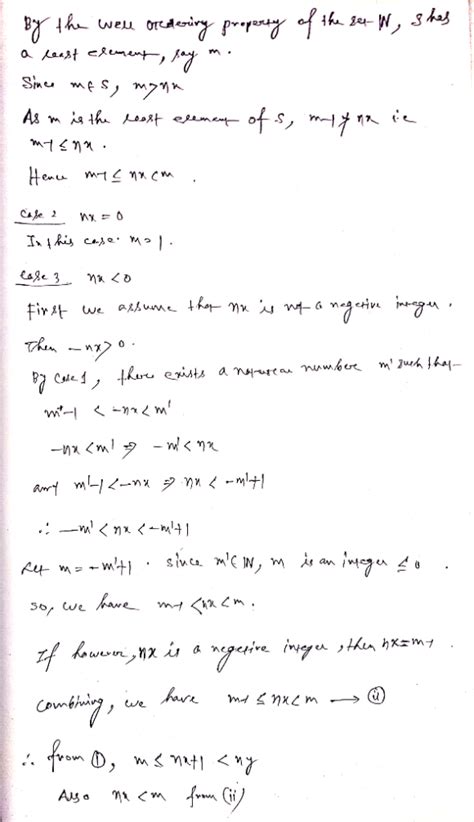 By the well ordering property of the set ℕ, S has
a least element, say m.
Since m∈S, m>nx
As m is the least element of S, m-1 ≯ nx i.e
m-1 ≤ nx.
Hence m-1 ≤ nx < m.
Case 2 nx = 0
In this case m = 1.
Case 3 nx < 0
First we assume that nx is not a negative integer.
Then -nx > 0.
By Case 1, there exists a natural number m' such that
m'-1 < -nx < m'
-nx < m' ⇒ -m' < nx
and m'-1 < -nx ⇒ nx < -m'+1
∴ -m' < nx < -m'+1
Let m = -m'+1. Since m'∈ℕ, m is an integer ≤ 0.
So, we have m-1 < nx < m.
If however, nx is a negative integer, then nx = m-1
Combining, we have m-1 ≤ nx < m → (ii)
∴ from (i), m ≤ nx+1 < ny
Also nx < m from (ii)